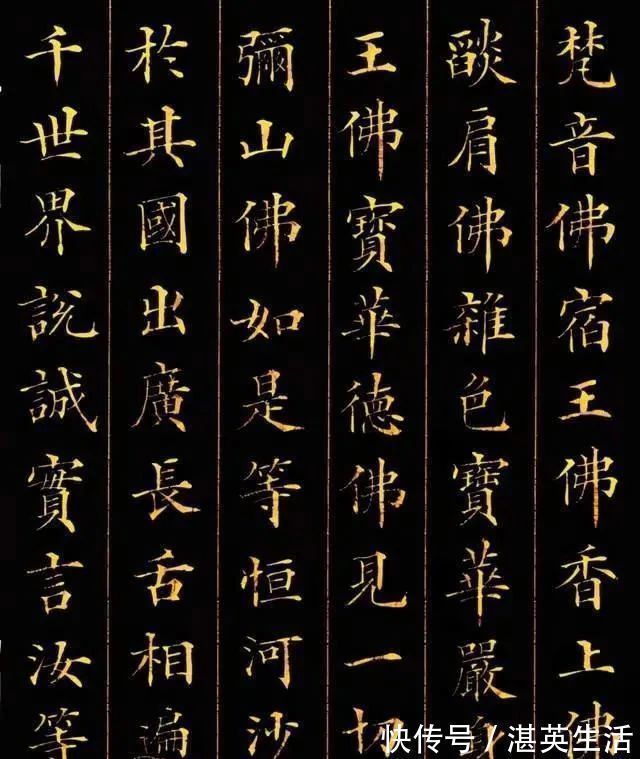 梵音佛宿王佛香上佛
燄肩佛雜色寶華嚴身
王佛寶華德佛見一切
彌山佛如是等恒河沙
於其國出廣長舌相遍
千世界說誠實言汝等
快传号/湛英生活